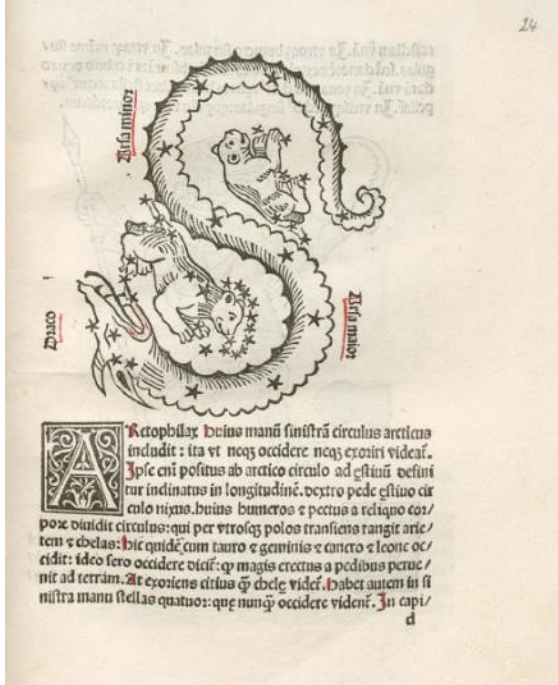 24
Ursa minor
Draco
Ursa maior
ARctophilax huius manũ sinistrã circulus arcticus
includit : ita vt neq3 occidere neq3 exoriri videat̃.
Ipse eni positus ab arctico circulo ad estiuũ defini
tur inclinatus in longitudinẽ. dextro pede estiuo cir
culo nixus. huius humeros ⁊ pectus a reliquo cor/
pore diuidit circulus: qui per vtrosq3 polos transiens tangit arie/
tem ⁊ chelas: hic quidẽ cum tauro ⁊ geminis ⁊ cancro ⁊ leone oc/
cidit: ideo sero occidere dicit̃: q̃ magis erectus a pedibus perue/
nit ad terram. At exoriens citius q̃ chele videt̃. Habet autem in si
nistra manu stellas quatuor: quę nunq̃ occidere vident̃. In capi/
d